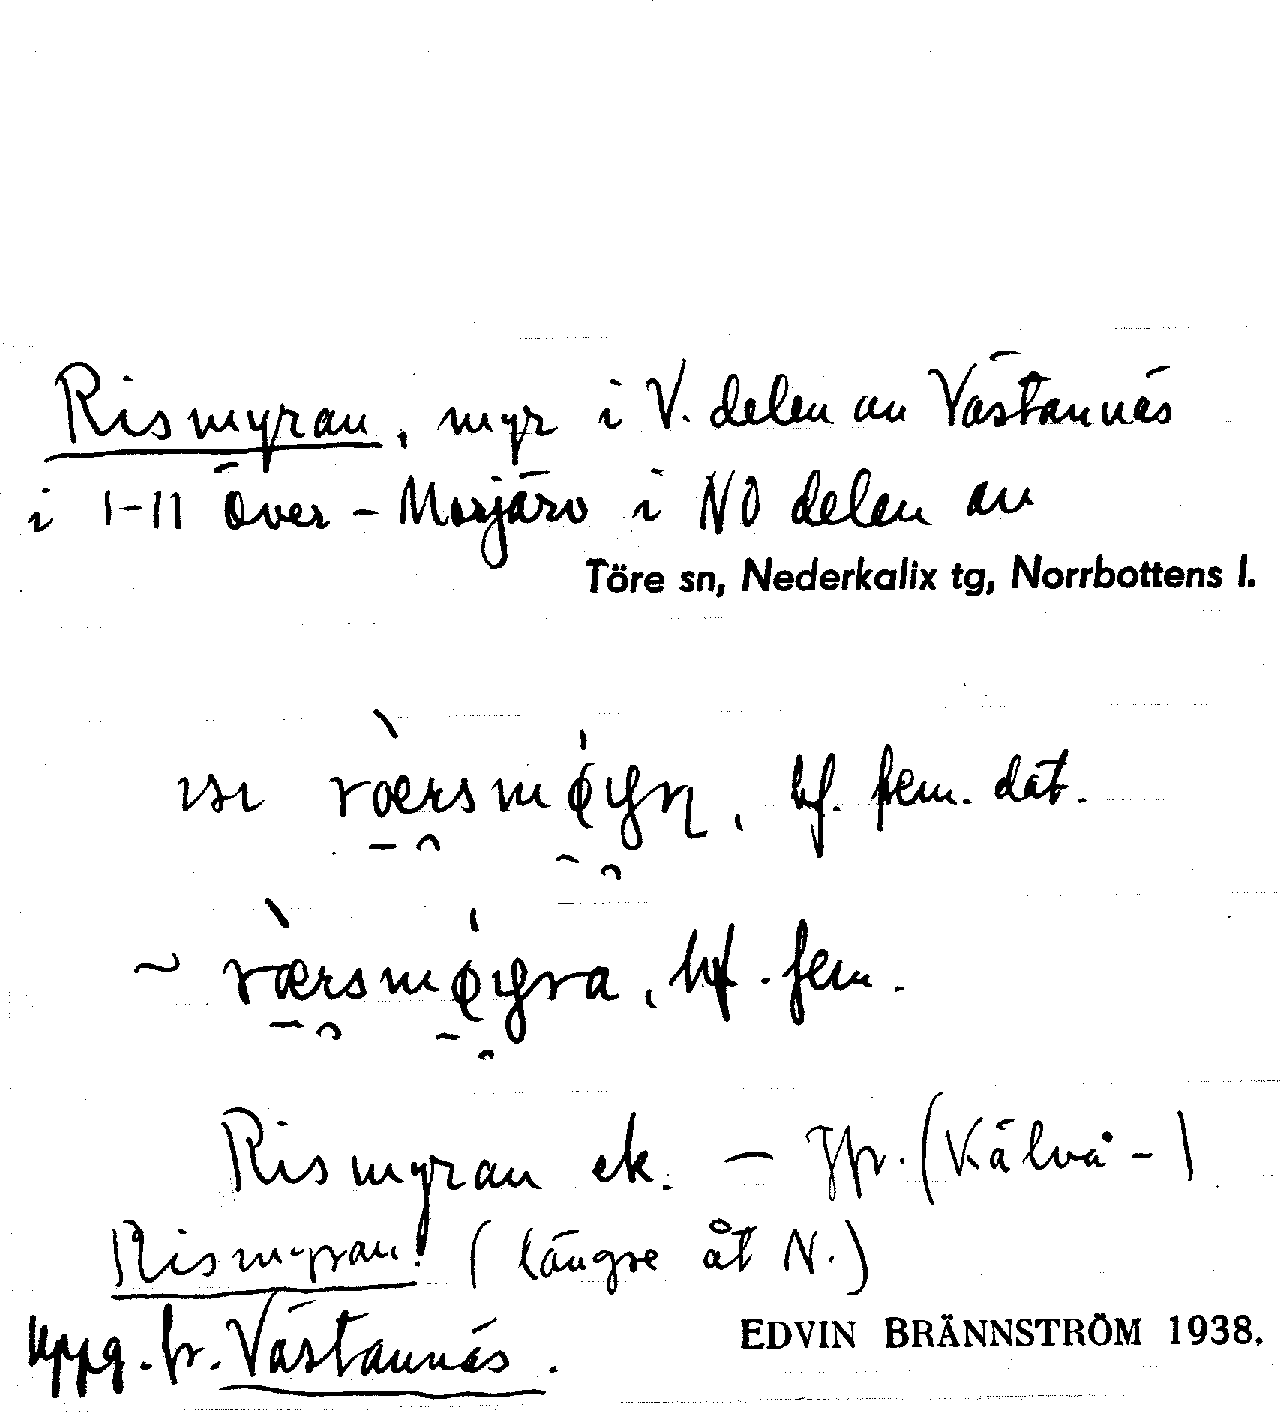 Rismyran, myr i V. delen av Västannäs
i 1-11 Över-Morjärv i NO delen av
Töre sn, Nederkalix tg, Norrbottens l.
bf. fem. dat.
~ bf. fem.
Rismyran ek. — Jfr. (Kälvå-)
Rismyran! (längre åt N.)
Uppg. fr. Västannäs.
EDVIN BRÄNNSTRÖM 1938.